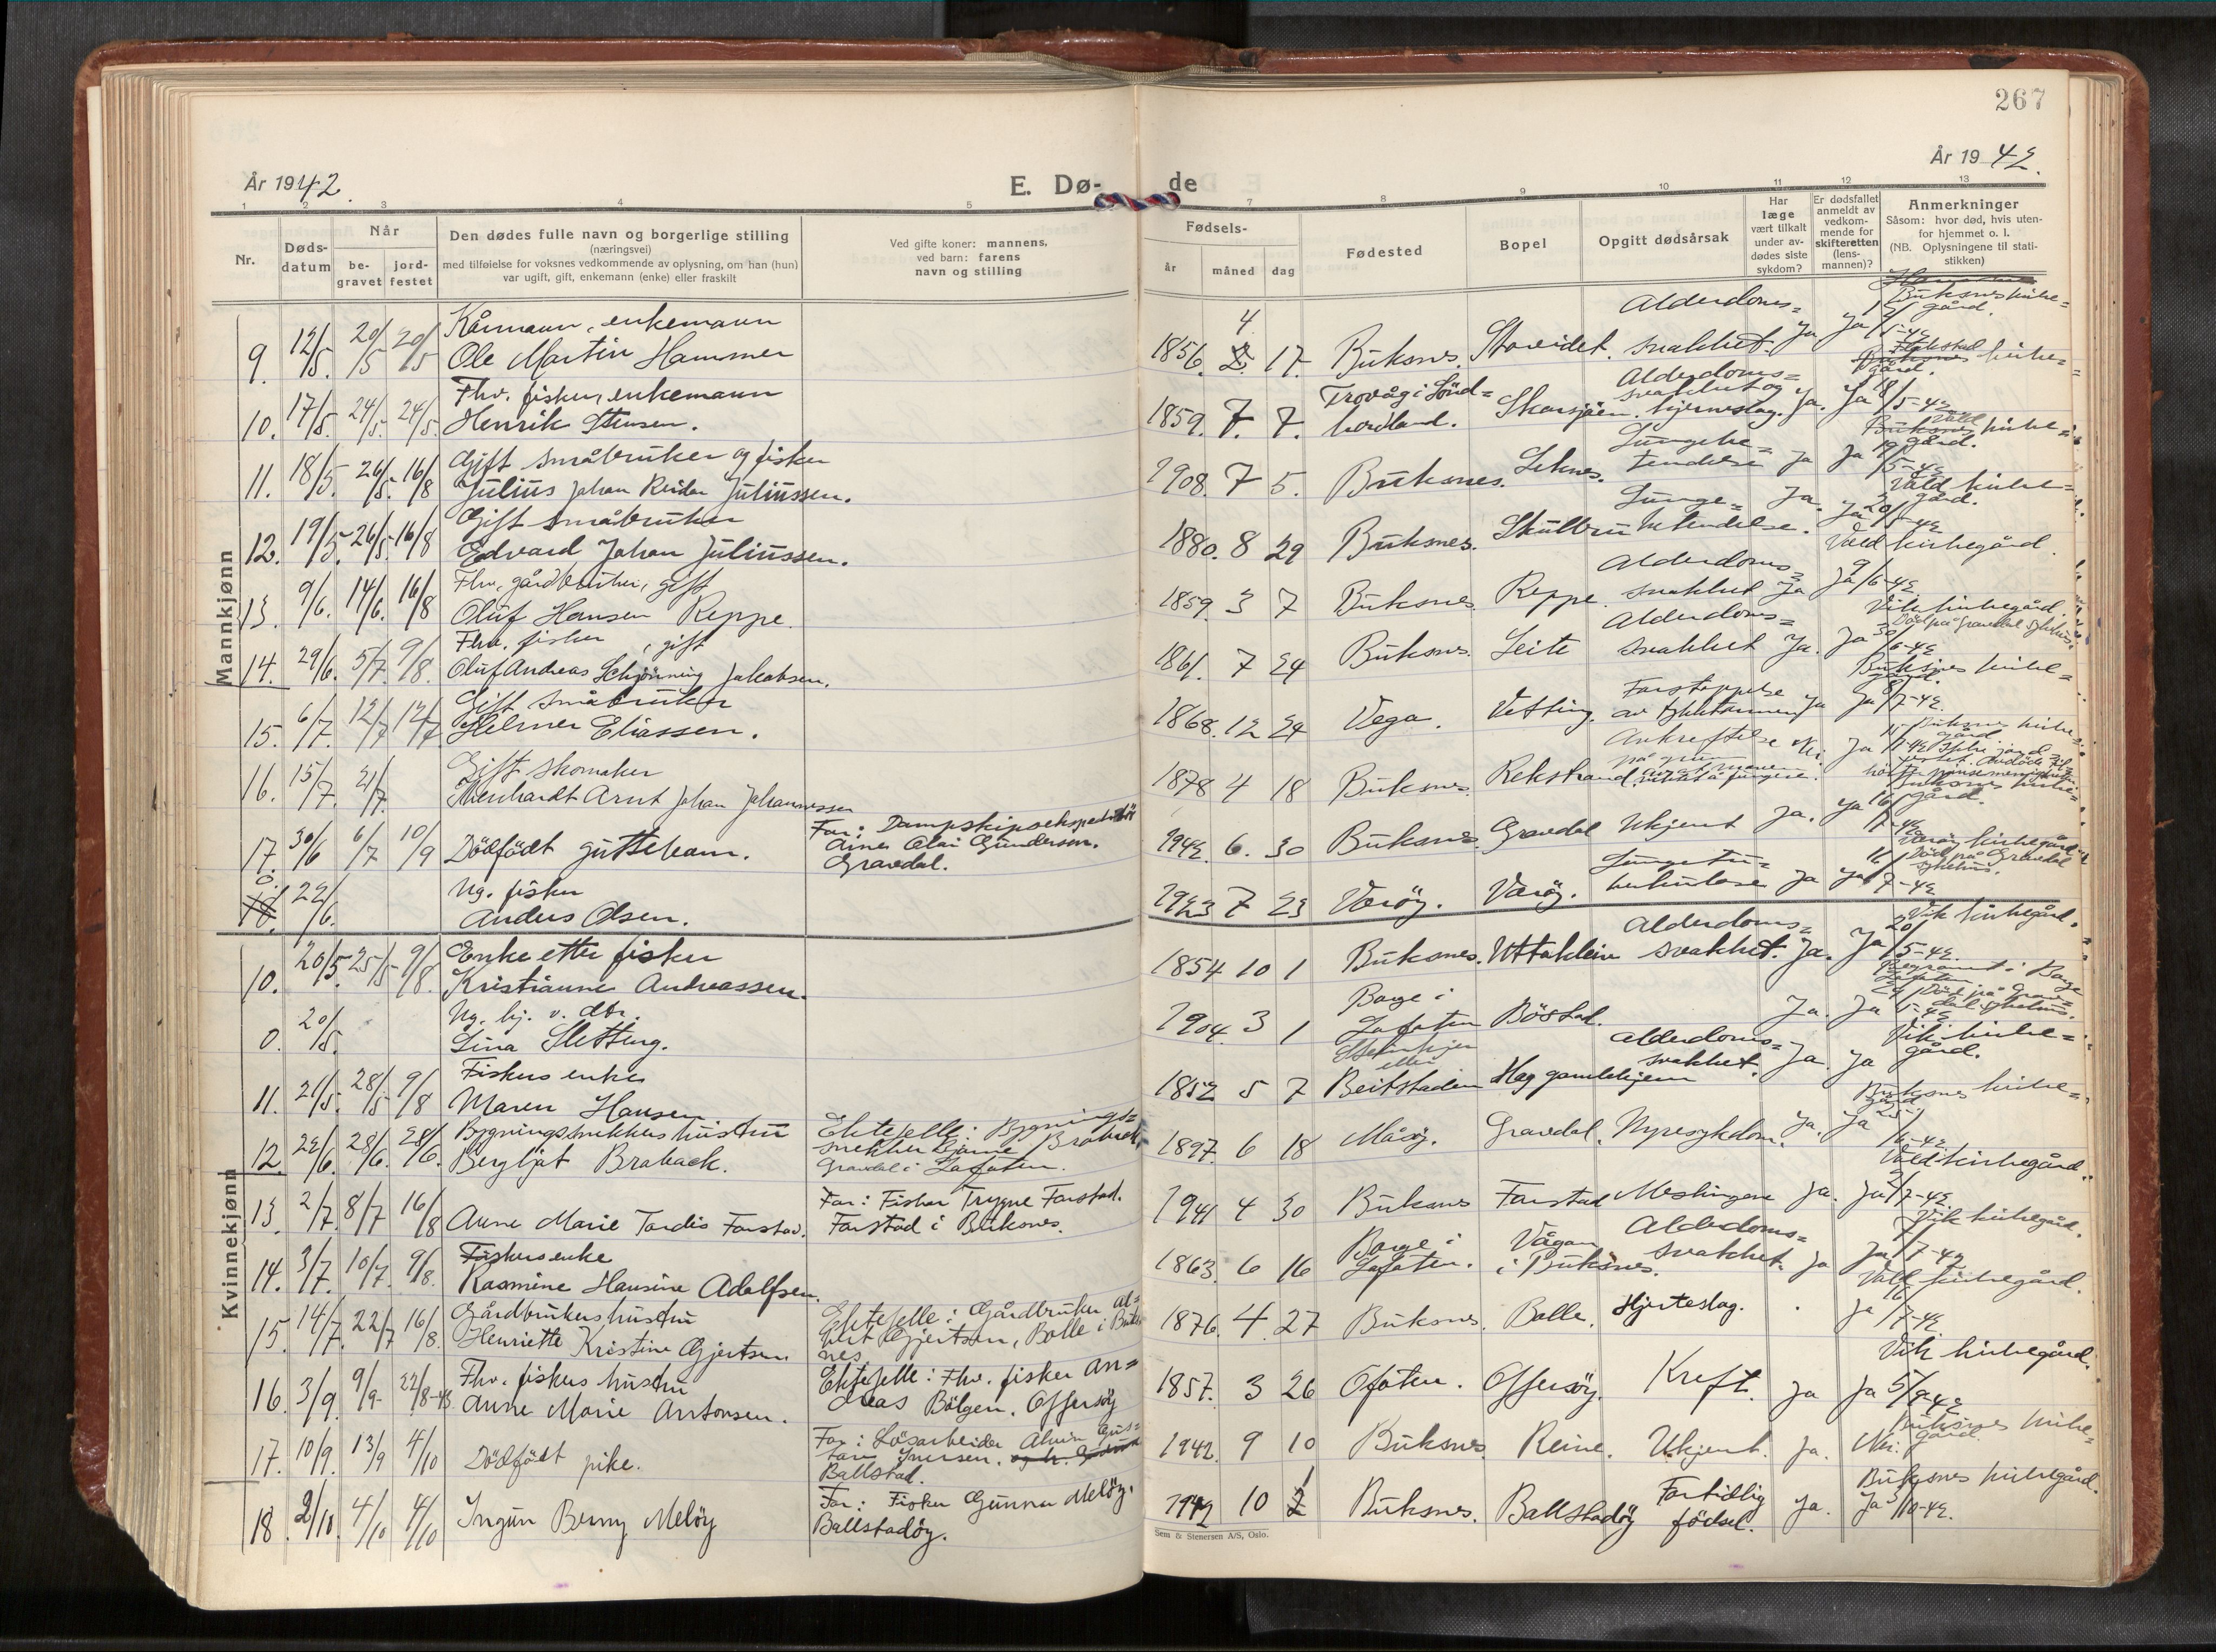 267
År 1942.
E. Dø-
de
År 1942.
1 2 3 4 5
7 8 9 10 11 12 13
Nr.
Døds-
datum
Når
be-
gravet
jord-
festet
Den dødes fulle navn og borgerlige stilling
(næringsvei)
med tilføielse for voksnes vedkommende av oplysning, om han (hun)
var ugift, gift, enkemann (enke) eller fraskilt
Ved gifte koner: mannens,
ved barn: farens
navn og stilling
Fødsels-
år måned dag
Fødested
Bopel
Opgitt dødsårsak
Har
læge
vært tilkalt
under av-
dødes siste
sykdom?
Er dødsfallet
anmeldt av
vedkom-
mende for
skifteretten
(lens-
mannen)?
Anmerkninger
Såsom: hvor død, hvis uten-
for hjemmet o. l.
(NB. Oplysningene til stati-
stikken)
Mannkjønn
Kårmann, enkemann
9. 12/5. 20/5 20/5 Ole Martin Hammer
1856. 4 17. Buksnes. Storeidet. Alderdoms=
svakhet. Ja Ja
Buksnes kirke=
gård.
Fhv. fisker, enkemann
10. 17/5. 24/5. 24/5. Henrik Stensen.
1859. 7. 7. Trovåg i Sönd=
hordland. Skarsjöen. Alderdoms=
svakhet og
hjerneslag. Ja. Ja 18/5-42
Flakstad kirke=
gård.
Gift småbruker og fisker
11. 18/5. 26/5. 16/8 Julius Johan Reidar Juliussen.
1908. 7 5. Buksnes. Leknes. Lungebe=
tendelse Ja Ja 19/5-42
Vald kirke=
gård.
Gift småbruker
12. 19/5. 26/5. 16/8 Edvard Johan Juliussen.
1880. 8 29 Buksnes. Skulbru Lunge=
betendelse. Ja. Ja 20/5-42
Vald kirke=
gård.
Fhv. gårdbruker, gift
13. 9/6. 14/6. 16/8 Oluf Hansen Reppe.
1859. 3 7 Buksnes Reppe. Alderdoms=
svakhet Ja Ja 9/6-42
Vald kirkegård.
Fhv. fisker, gift
14. 29/6. 5/7. 9/8. Oluf Andreas Schjönning Jakobsen.
1861. 7 24 Buksnes. Leite Alderdoms=
svakhet Ja. Ja 30/6-42
Vik kirkegård.
Död på Gravdal sykehus.
Gift småbruker
15. 6/7. 12/7 12/7 Helmer Eliassen.
1868. 12 24 Vega. Vetting. Forstoppelse
av Ja Ja 8/7-42.
Buksnes kirke=
gård.
Gift skomaker
16. 15/7. 21/7. Menhardt Arnt Johan Johannessen
1878 4 18 Buksnes. Rekstrand. Avkreftelse
på grunn Nei. Ja
Buksnes kirke=
gård
17. 30/6 6/7 10/9 Dödfödt guttebarn.
Far: Dampskipsekspeditör
Einer Olai Gundersen.
Gravdal.
1942. 6. 30 Buksnes. Gravdal Ukjent Ja. Ja 16/7-42
Buksnes kirke=
gård.
Ug. fisker
0. 22/6. Anders Olsen.
1923 7 23 Væröy. Væröy. Lungetu=
berkulose Ja Ja 16/7-42
Væröy kirkegård
Död på Gravdal
sykehus.
Kvinnekjønn
Enke etter fisker
10. 20/5. 25/5 9/8. Kristianne Andreassen.
1854 10 1 Buksnes. Uttakleiv Alderdoms=
svakhet. Ja. Ja 20/5-42.
Vik kirkegård.
Ug. hj. v. dtr.
0. 20/5. Lina Sletteng.
1904. 3 1 Borge i
Lofoten Böstad. Ja. Ja
Begravet i Borge
Lofoten
Död på Grav=
dal sykehus.
Fiskers enke
11. 21/5. 28/5 9/8 Maren Hansen.
1852 5 7 Steinkjer
eller
Beitstaden Hag gamlehjem Alderdoms=
svakhet. Ja. Ja
Vik kirke=
gård.
Bygningssnekkers hustru
12. 22/6. 28/6. 28/6. Bergljot Braback.
Ektefelle: Bygnings=
snekker Bjarne Braback
Gravdal i Lofoten.
1897. 6 18 Måsöy. Gravdal. Nyresykdom. Ja. Ja 25/6-42.
Buksnes kirke=
gård
13. 2/7. 8/7 16/8 Anne Marie Tordis Farstad.
Far: Fisker Trygve Farstad.
Farstad i Buksnes.
1941 4 30 Buksnes Farstad Meslingene Ja. Ja 2/7-42
Vald kirkegård.
Fiskers enke
14. 3/7. 10/7. 9/8. Rasmine Hansine Adolfsen.
1863. 6 16 Borge i
Lofoten. Vågan
i Buksnes. Alderdoms=
svakhet. Ja Ja 7/7-42
Vik kirkegård.
Gårdbrukers hustru
15. 14/7. 22/7 16/8. Henriette Kristine Gjertsen
Ektefelle: Gårdbruker Al=
bert Gjertsen, Bolle i Buks
nes
1876. 4. 27 Buksnes. Bolle. Hjerteslag. . Ja 16/7-42
Vald kirkegård.
Fhv. fiskers hustru
16. 3/9. 9/9- 22/8-43 Anne Marie Antonsen.
Ektefelle: Fhv. fisker An=
dreas Bölgen. Offersöy
1857. 3 26 Ofoten. Offersöy. Kreft. Ja Ja 5/9-42
Vik kirkegård.
17. 10/9. 13/9 4/10 Dödfödt pike.
Far: Lösarbeider Alvin Gus=
tav Iversen.
Ballstad.
1942. 9 10 Buksnes. Reine. Ukjent. Ja. Nei.
Buksnes kirke=
gård
18 2/10. 4/10 4/10 Ingun Benny Melöy
Far: Fisker Gunnar Melöy.
Ballstadöy.
1942 10 1 Buksnes. Ballstadöy Fortidlig
födsel. Ja. Ja 3/10-42.
Buksnes kirkegård.
Sem & Stenersen A/S, Oslo.